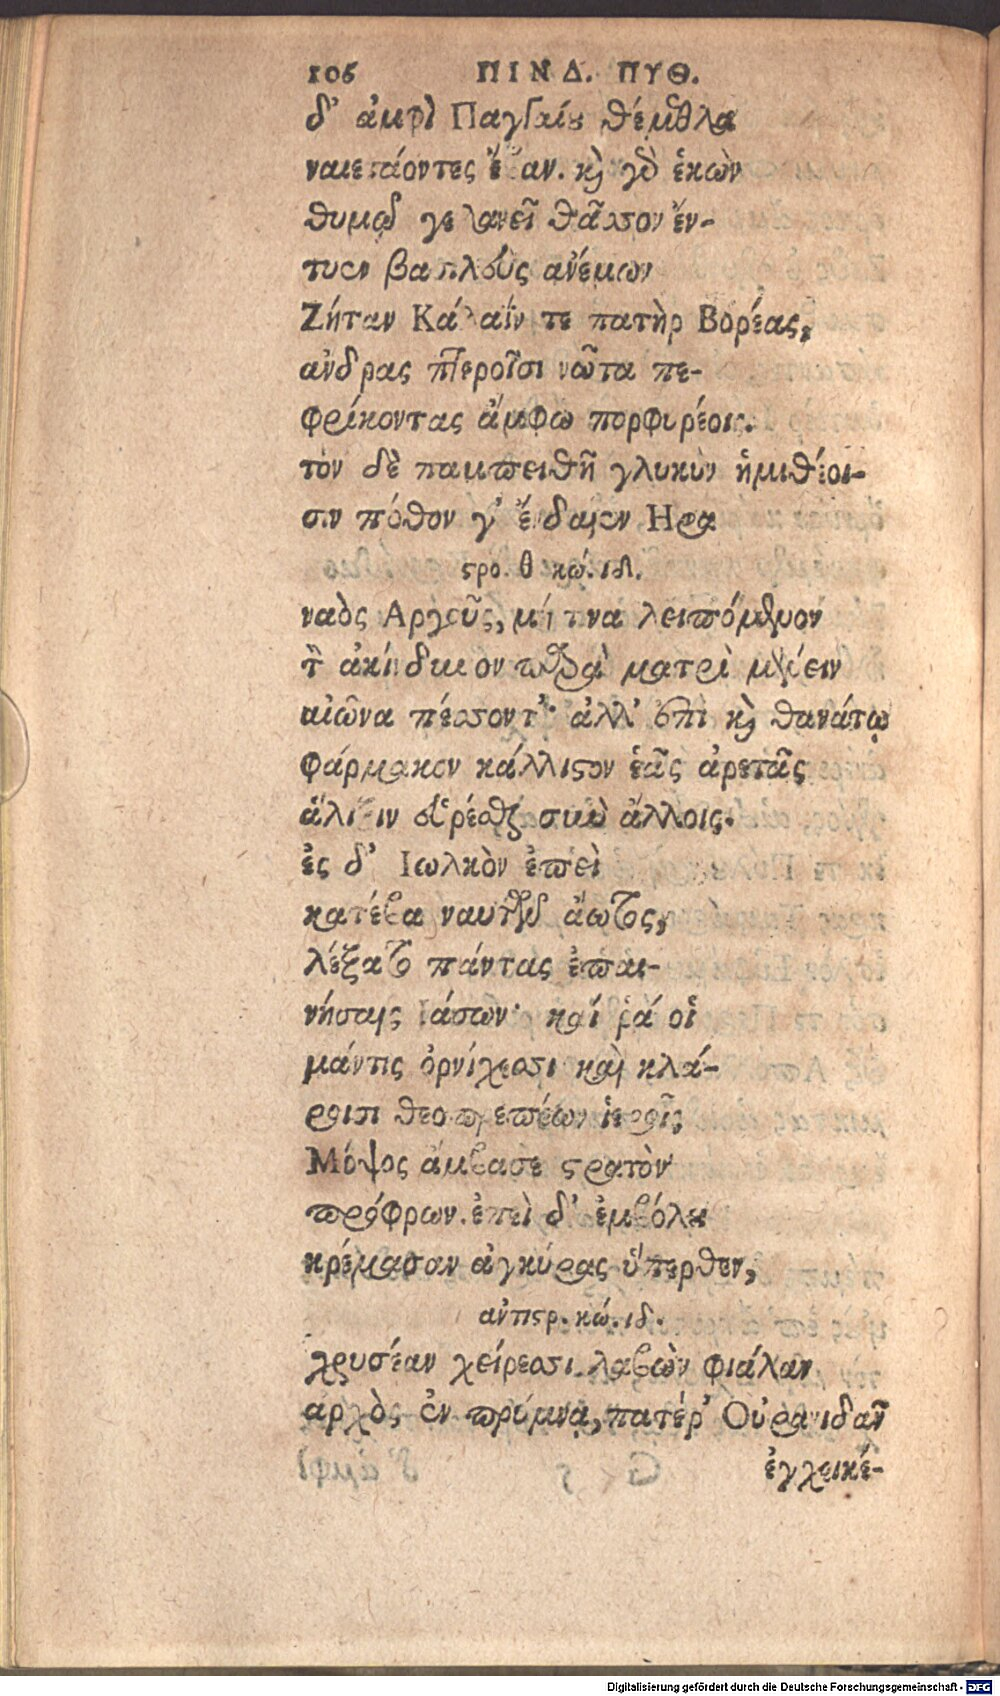 106 ΠΙΝΔ. ΠΥΘ.
δ' ἀμφὶ Παγγαίου θέμεθλα
ναιετάοντες ἔβαν. καὶ γὰρ ἑκὼν
θυμῷ γελανεῖ θᾶσσον ἔν-
τυεν βασιλεὺς ἀνέμων
Ζήταν Κάλαΐν τε πατὴρ Βορέας,
ἄνδρας πτεροῖσι νῶτα πε-
φρίκοντας ἄμφω πορφυρέοις.
τὸν δὲ παμπειθῆ γλυκὺν ἡμιθέοι-
σιν πόθον γ' ἔνδαιεν Ηρα
στρο. θ κώ. ιδ.
ναὸς Αργοῦς, μή τινα λειπόμενον
τὰν ἀκίνδυνον παρὰ ματρὶ μένειν
αἰῶνα πέσσοντ'· ἀλλ' ἐπὶ καὶ θανάτῳ
φάρμακον κάλλιστον ἑᾶς ἀρετᾶς
ἅλιξιν εὑρέσθαι σὺν ἄλλοις.
ἐς δ' Ιωλκὸν ἐπεὶ
κατέβα ναυτῶν ἄωτος,
λέξατο πάντας ἐπαι-
νήσαις Ιάσων· καί ῥά οἱ
μάντις ὀρνίχεσσι καὶ κλά-
ροισι θεοπροπέων ἱεροῖς
Μόψος ἄμβασε στρατὸν
πρόφρων. ἐπεὶ δ' ἐμβόλου
κρέμασαν ἀγκύρας ὕπερθεν,
ἀντιστρ. κώ. ιδ.
χρυσέαν χείρεσσι λαβὼν φιάλαν
ἀρχὸς ἐν πρύμνᾳ, πατέρ' Οὐρανιδᾶν
ἐγχεικέ-
Digitalisierung gefördert durch die Deutsche Forschungsgemeinschaft - DFG